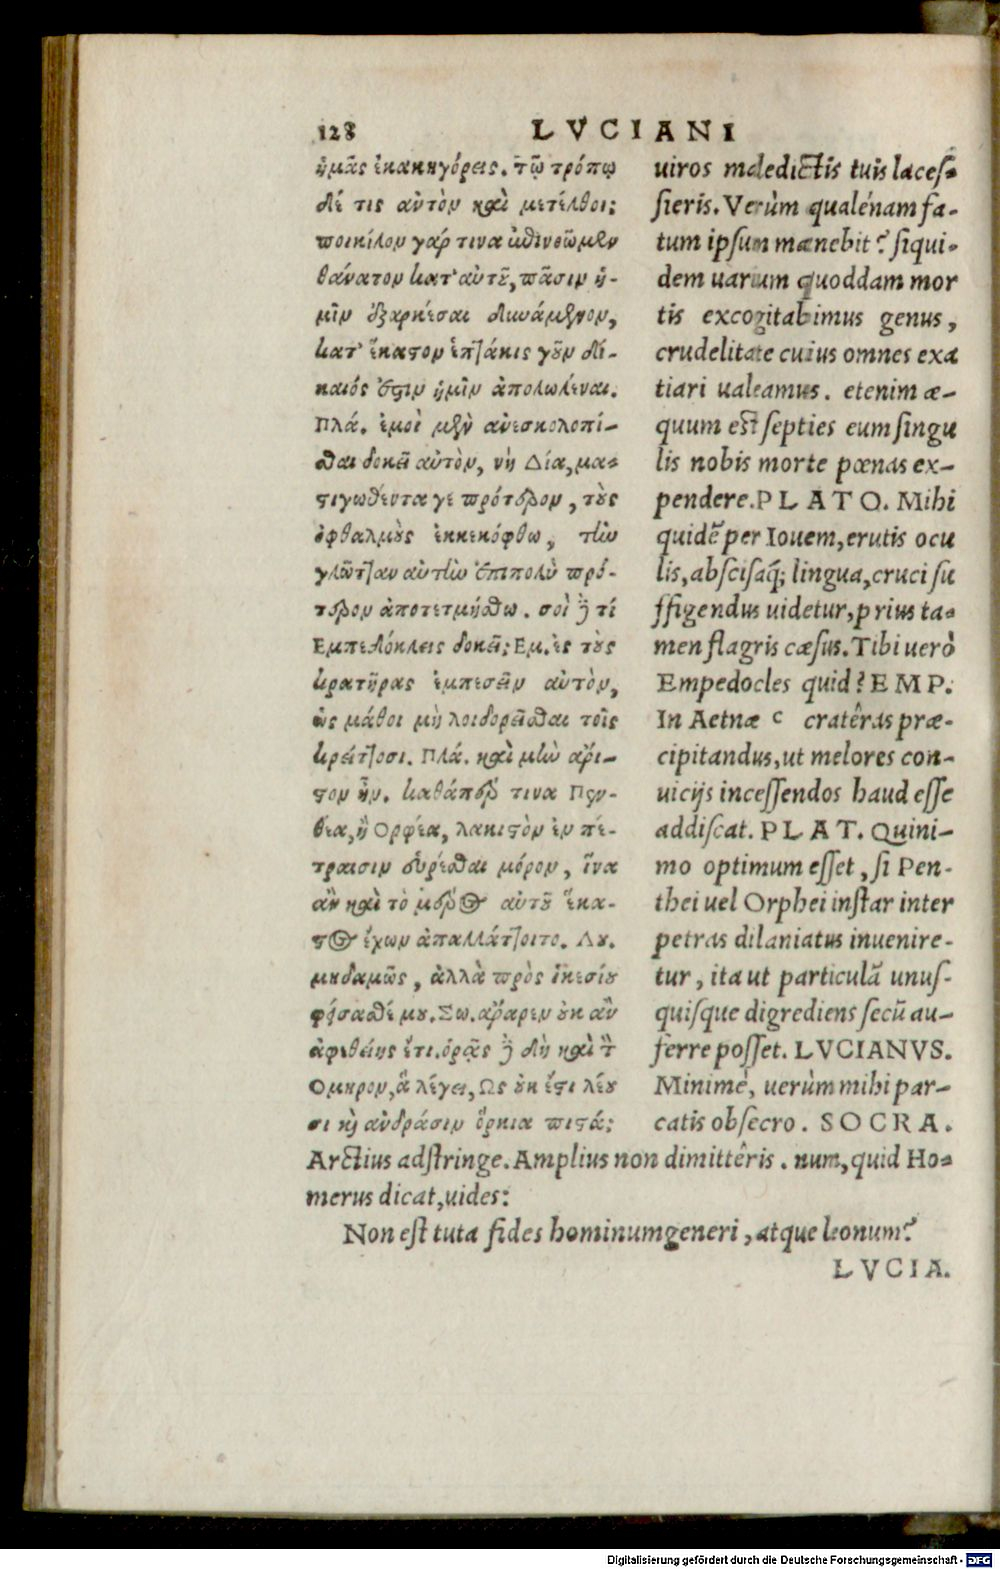 128 LVCIANI
ἡμᾶς ἐκακηγόρεις. τῷ τρόπῳ
δέ τις αὐτὸν καὶ μετέλθοι;
ποικίλον γάρ τινα ἐπινοῶμεν
θάνατον κατ' αὐτοῦ, πᾶσιν ἡ-
μῖν ἐξαρκέσαι δυνάμενον,
κατ' ἕκαστον ἑπτάκις γοῦν δί-
καιός ἐστιν ἡμῖν ἀπολωλέναι.
Πλά. ἐμοὶ μὲν ἀνεσκολοπί-
σθαι δοκεῖ αὐτὸν, νὴ Δία, μα-
στιγωθέντα γε πρότερον, τοὺς
ὀφθαλμοὺς ἐκκεκόφθω, τὴν
γλῶτταν αὐτὴν ἔτι πολὺ πρό-
τερον ἀποτετμήσθω. σοὶ δὲ τί
Εμπεδόκλεις δοκεῖ; Εμ. ἐς τοὺς
κρατῆρας ἐμπεσεῖν αὐτὸν,
ὡς μάθοι μὴ λοιδορεῖσθαι τοῖς
κρείττοσι. Πλά. καὶ μὴν ἄρι-
στον ἦν. καθάπερ τινα Πεν-
θέα, ἢ Ορφέα, λακιστὸν ἐν πέ-
τραισιν εὑρέσθαι μόρον, ἵνα
ἂν καὶ τὸ μέρος αὐτοῦ ἕκα-
στος ἔχων ἀπαλλάττοιτο. Λου.
μηδαμῶς, ἀλλὰ πρὸς ἱκεσίου
φείσασθέ μου. Σω. ἄραρεν οὐκ ἂν
ἀφεθείης ἔτι. ὁρᾷς δὲ δὴ καὶ τὸν
Ομηρον, ἃ λέγει, Ως οὐκ ἔστι λέου
σι καὶ ἀνδράσιν ὅρκια πιστά;
uiros maledictis tuis laces-
sieris. Verùm qualénam fa-
tum ipsum manebit? siqui-
dem uarium quoddam mor
tis excogitabimus genus,
crudelitate cuius omnes exa
tiari ualeamus. etenim æ-
quum est septies eum singu
lis nobis morte pœnas ex-
pendere. PLATO. Mihi
quidẽ per Iouem, erutis ocu
lis, abscisaq́; lingua, cruci su
ffigendus uidetur, prius ta-
men flagris cæsus. Tibi uerò
Empedocles quid? EMP.
In Aetnæ c cratêras præ-
cipitandus, ut melores con-
uicijs incessendos haud esse
addiscat. PLAT. Quini-
mo optimum esset, si Pen-
thei uel Orphei instar inter
petras dilaniatus inuenire-
tur, ita ut particulã unus-
quisque digrediens secũ au-
ferre posset. LVCIANVS.
Minimè, uerùm mihi par-
catis obsecro. SOCRA.
Arctius adstringe. Amplius non dimittêris. num, quid Ho-
merus dicat, uides:
Non est tuta fides hominum generi, atque leonum?
LVCIA.
Digitalisierung gefördert durch die Deutsche Forschungsgemeinschaft - DFG